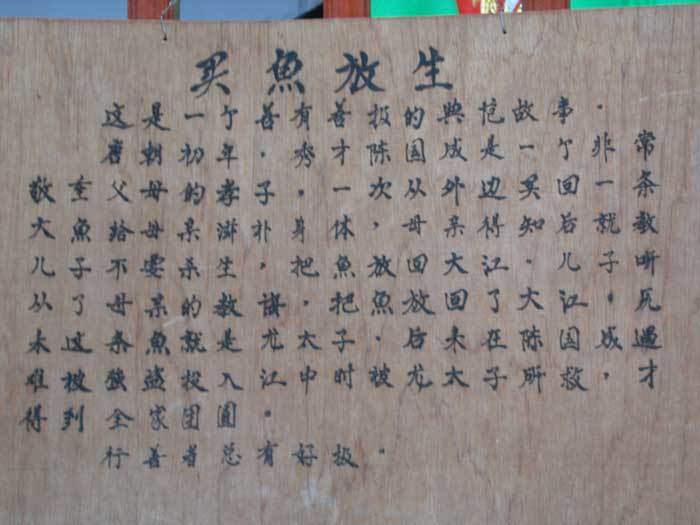 买魚放生
这是一个善有善报的典范故事。
唐朝初年,秀才陈国成是一个非常
敬重父母的孝子。一次,从外边买回一条
大魚给母亲滋朴身体,母亲得知后就教
儿子不要杀生,把魚放回大江。儿子听
从母亲的教诲,把魚放回了大江。原
来这条魚就是尤太子。后来在陈国成遇
难被强盗投入江中时,被尤太子所救,才
得到全家团圆。
行善者总有好报。